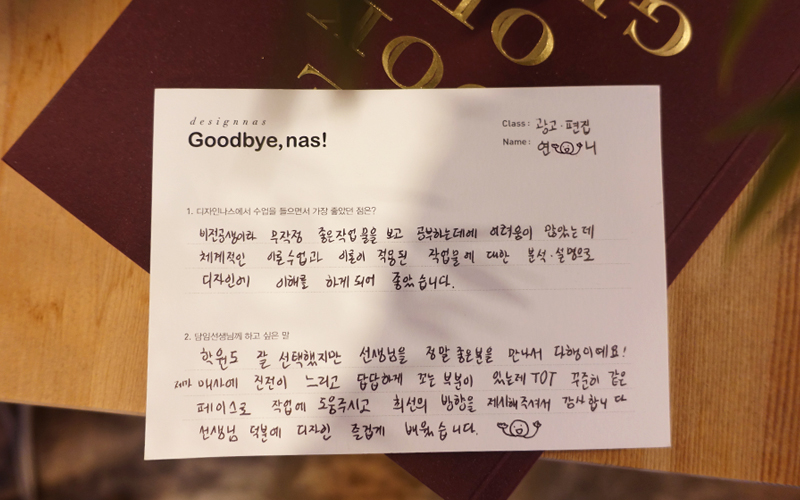 designnas
Goodbye, nas!
Class : 광고·편집
Name : 연 니
1. 디자인나스에서 수업을 들으면서 가장 좋았던 점은?
비전공생이라 무작정 좋은작업물을 보고 공부하는데에 어려움이 많았는데
체계적인 이론수업과 이론이 적용된 작업물에 대한 분석·설명으로
디자인에 이해를 하게 되어 좋았습니다.
2. 담임선생님께 하고 싶은 말
학원도 잘 선택했지만 선생님을 정말 좋은분을 만나서 다행이예요!
제가 매사에 진전이 느리고 답답하게 구는 부분이 있는데 ToT 꾸준히 같은
페이스로 작업에 도움주시고 최선의 방향을 제시해주셔서 감사합니다
선생님 덕분에 디자인 즐겁게 배웠습니다.